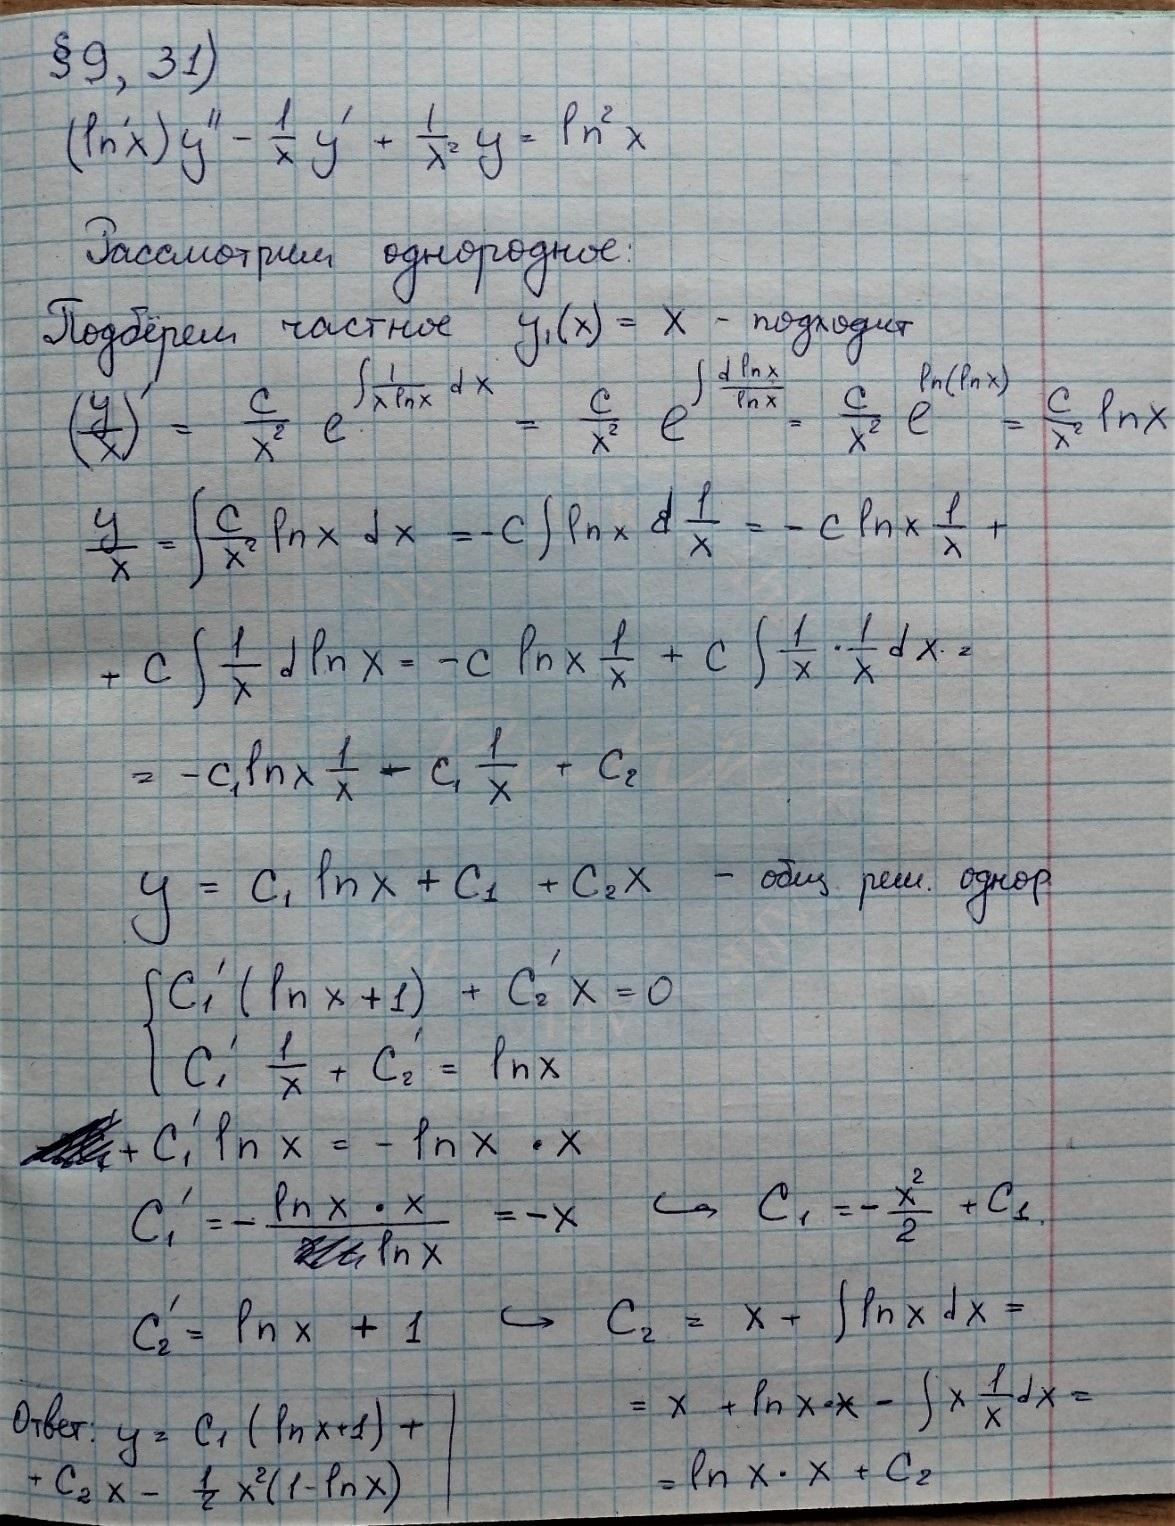 §9, 31)
(ln x) y'' - 1/x y' + 1/x² y = ln² x
Рассмотрим однородное:
Подберём частное y₁(x) = x - подходит
(y/x)' = C/x² e^{∫ 1/(x ln x) dx} = C/x² e^{∫ d ln x / ln x} = C/x² e^{ln(ln x)} = C/x² ln x
y/x = ∫ C/x² ln x dx = -C ∫ ln x d 1/x = - C ln x 1/x +
+ C ∫ 1/x d ln x = -C ln x 1/x + C ∫ 1/x · 1/x dx =
= -C₁ ln x 1/x - C₁ 1/x + C₂
y = C₁ ln x + C₁ + C₂ x - общ. реш. однор
{ C₁' (ln x + 1) + C₂' x = 0
C₁' 1/x + C₂' = ln x
+ C₁' ln x = - ln x · x
C₁' = - (ln x · x)/(ln x) = -x ↪ C₁ = - x²/2 + C₁.
C₂' = ln x + 1 ↪ C₂ = x + ∫ ln x dx =
= x + ln x · x - ∫ x 1/x dx =
= ln x · x + C₂
Ответ: y = C₁ (ln x + 1) +
+ C₂ x - 1/2 x² (1 - ln x)